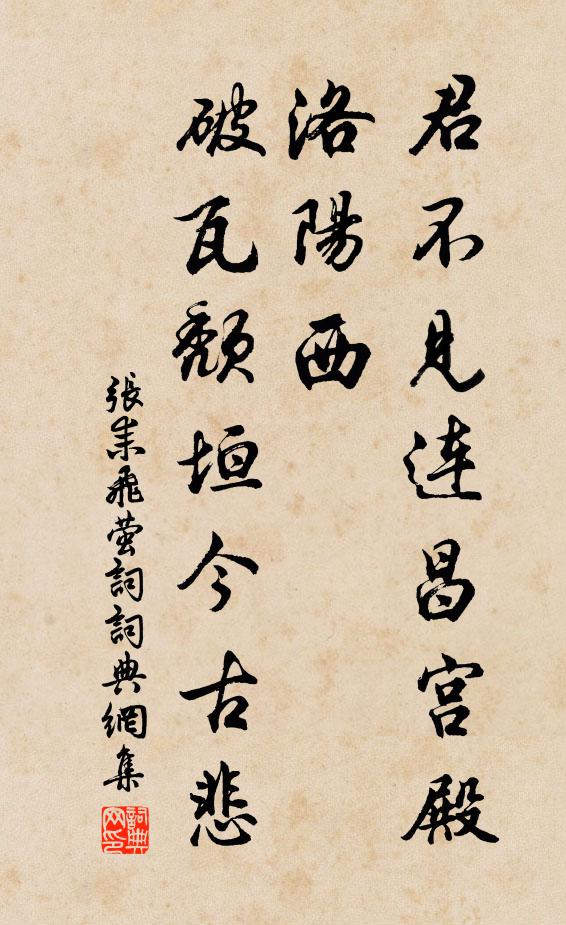 君不見連昌宮殿
洛陽西
破瓦頹垣今古悲
張耒飛萤詞詞典網集
詞典网印